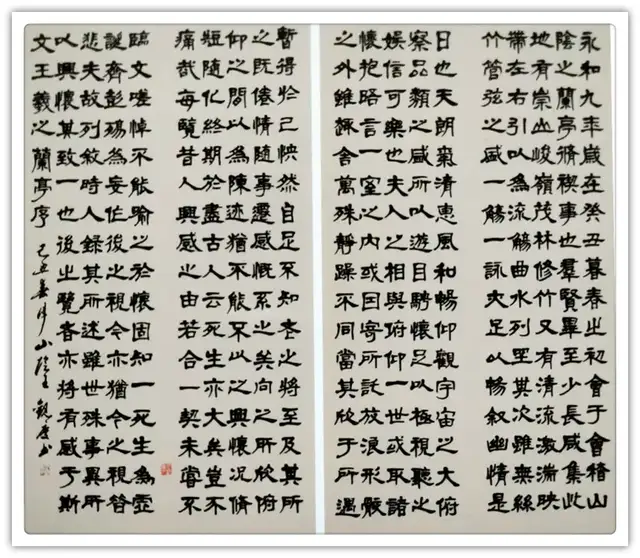 永和九年歲在癸丑暮春之初會于會稽山
陰之蘭亭脩禊事也羣賢畢至少長咸集此
地有崇山峻嶺茂林修竹又有清流激湍映
帶左右引以為流觴曲水列坐其次雖無絲
竹管弦之盛一觴一詠亦足以暢叙幽情是
日也天朗氣清惠風和暢仰觀宇宙之大俯
察品類之盛所以遊目騁懷足以極視聽之
娛信可樂也夫人之相與俯仰一世或取諸
懷抱晤言一室之内或因寄所託放浪形骸
之外雖趣舍萬殊靜躁不同當其欣于所遇
暫得於己怏然自足不知老之將至及其所
之既倦情隨事遷感慨系之矣向之所欣俯
仰之間以為陳迹猶不能不以之興懷況脩
短隨化終期於盡古人云死生亦大矣豈不
痛哉每覽昔人興感之由若合一契未嘗不
臨文嗟悼不能喻之於懷固知一死生為虛
誕齊彭殤為妄作後之視今亦猶今之視昔
悲夫故列敘時人錄其所述雖世殊事異所
以興懷其致一也後之覽者亦將有感于斯
文王羲之蘭亭序 己丑春月山陰王